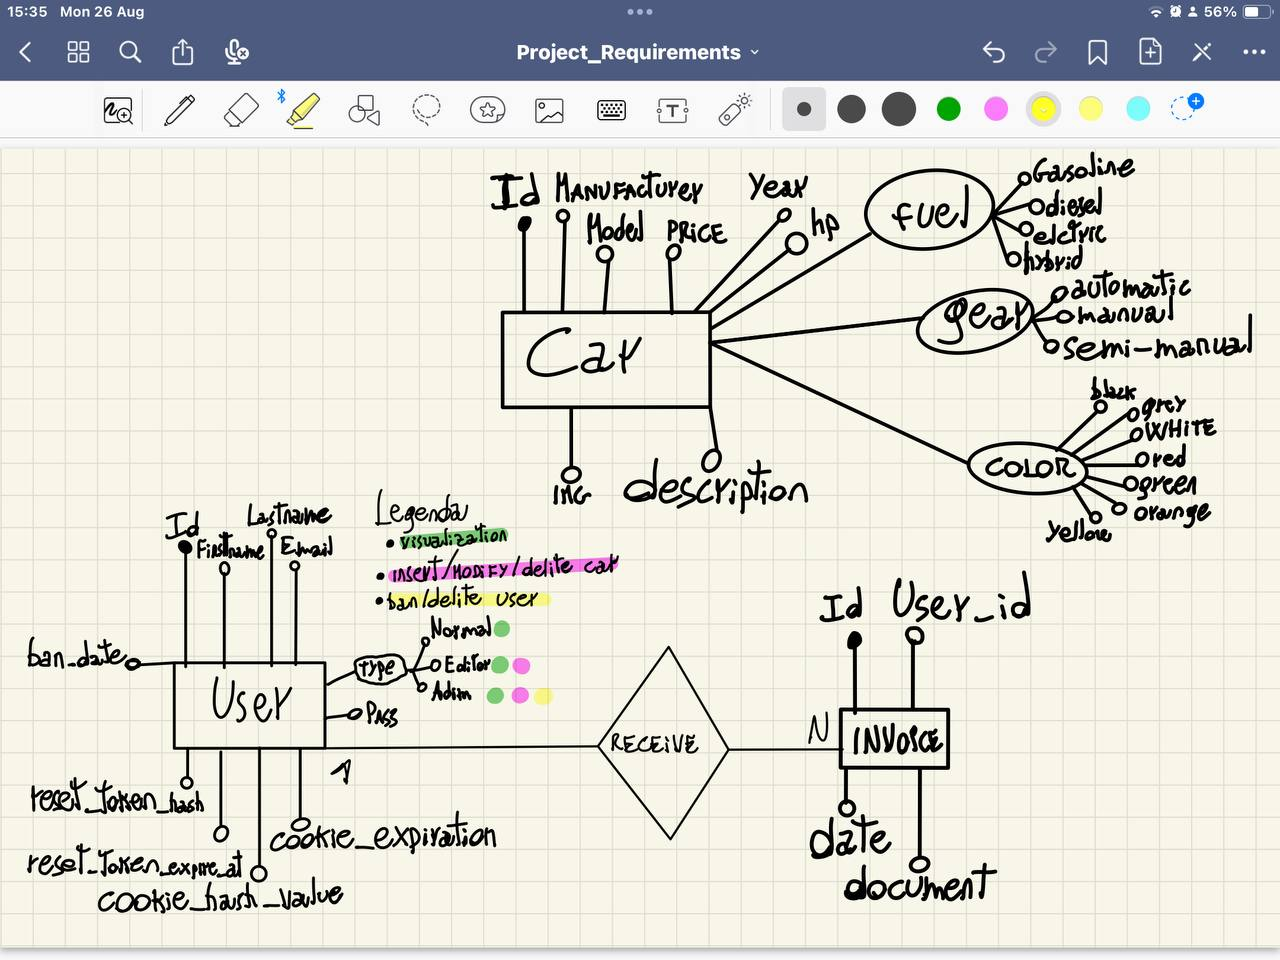 15:35 Mon 26 Aug
56%
Project_Requirements
Id
MANUFACTURER
Model
PRICE
Year
hp
fuel
Gasoline
diesel
elctric
hybrid
gear
automatic
manual
semi-manual
Car
COLOR
black
grey
WHITE
red
green
orange
Yellow
IMG
description
Legenda
• visualization
• insert/MODIFY/delite car
• ban/delite user
Id
Firstname
Lastname
Email
ban_date
User
TYPE
Normal
Editor
Adim
PASS
1
reset_token_hash
reset_token_expire_at
cookie_hash_value
cookie_expiration
RECEIVE
N
Id
User_id
INVOICE
date
document